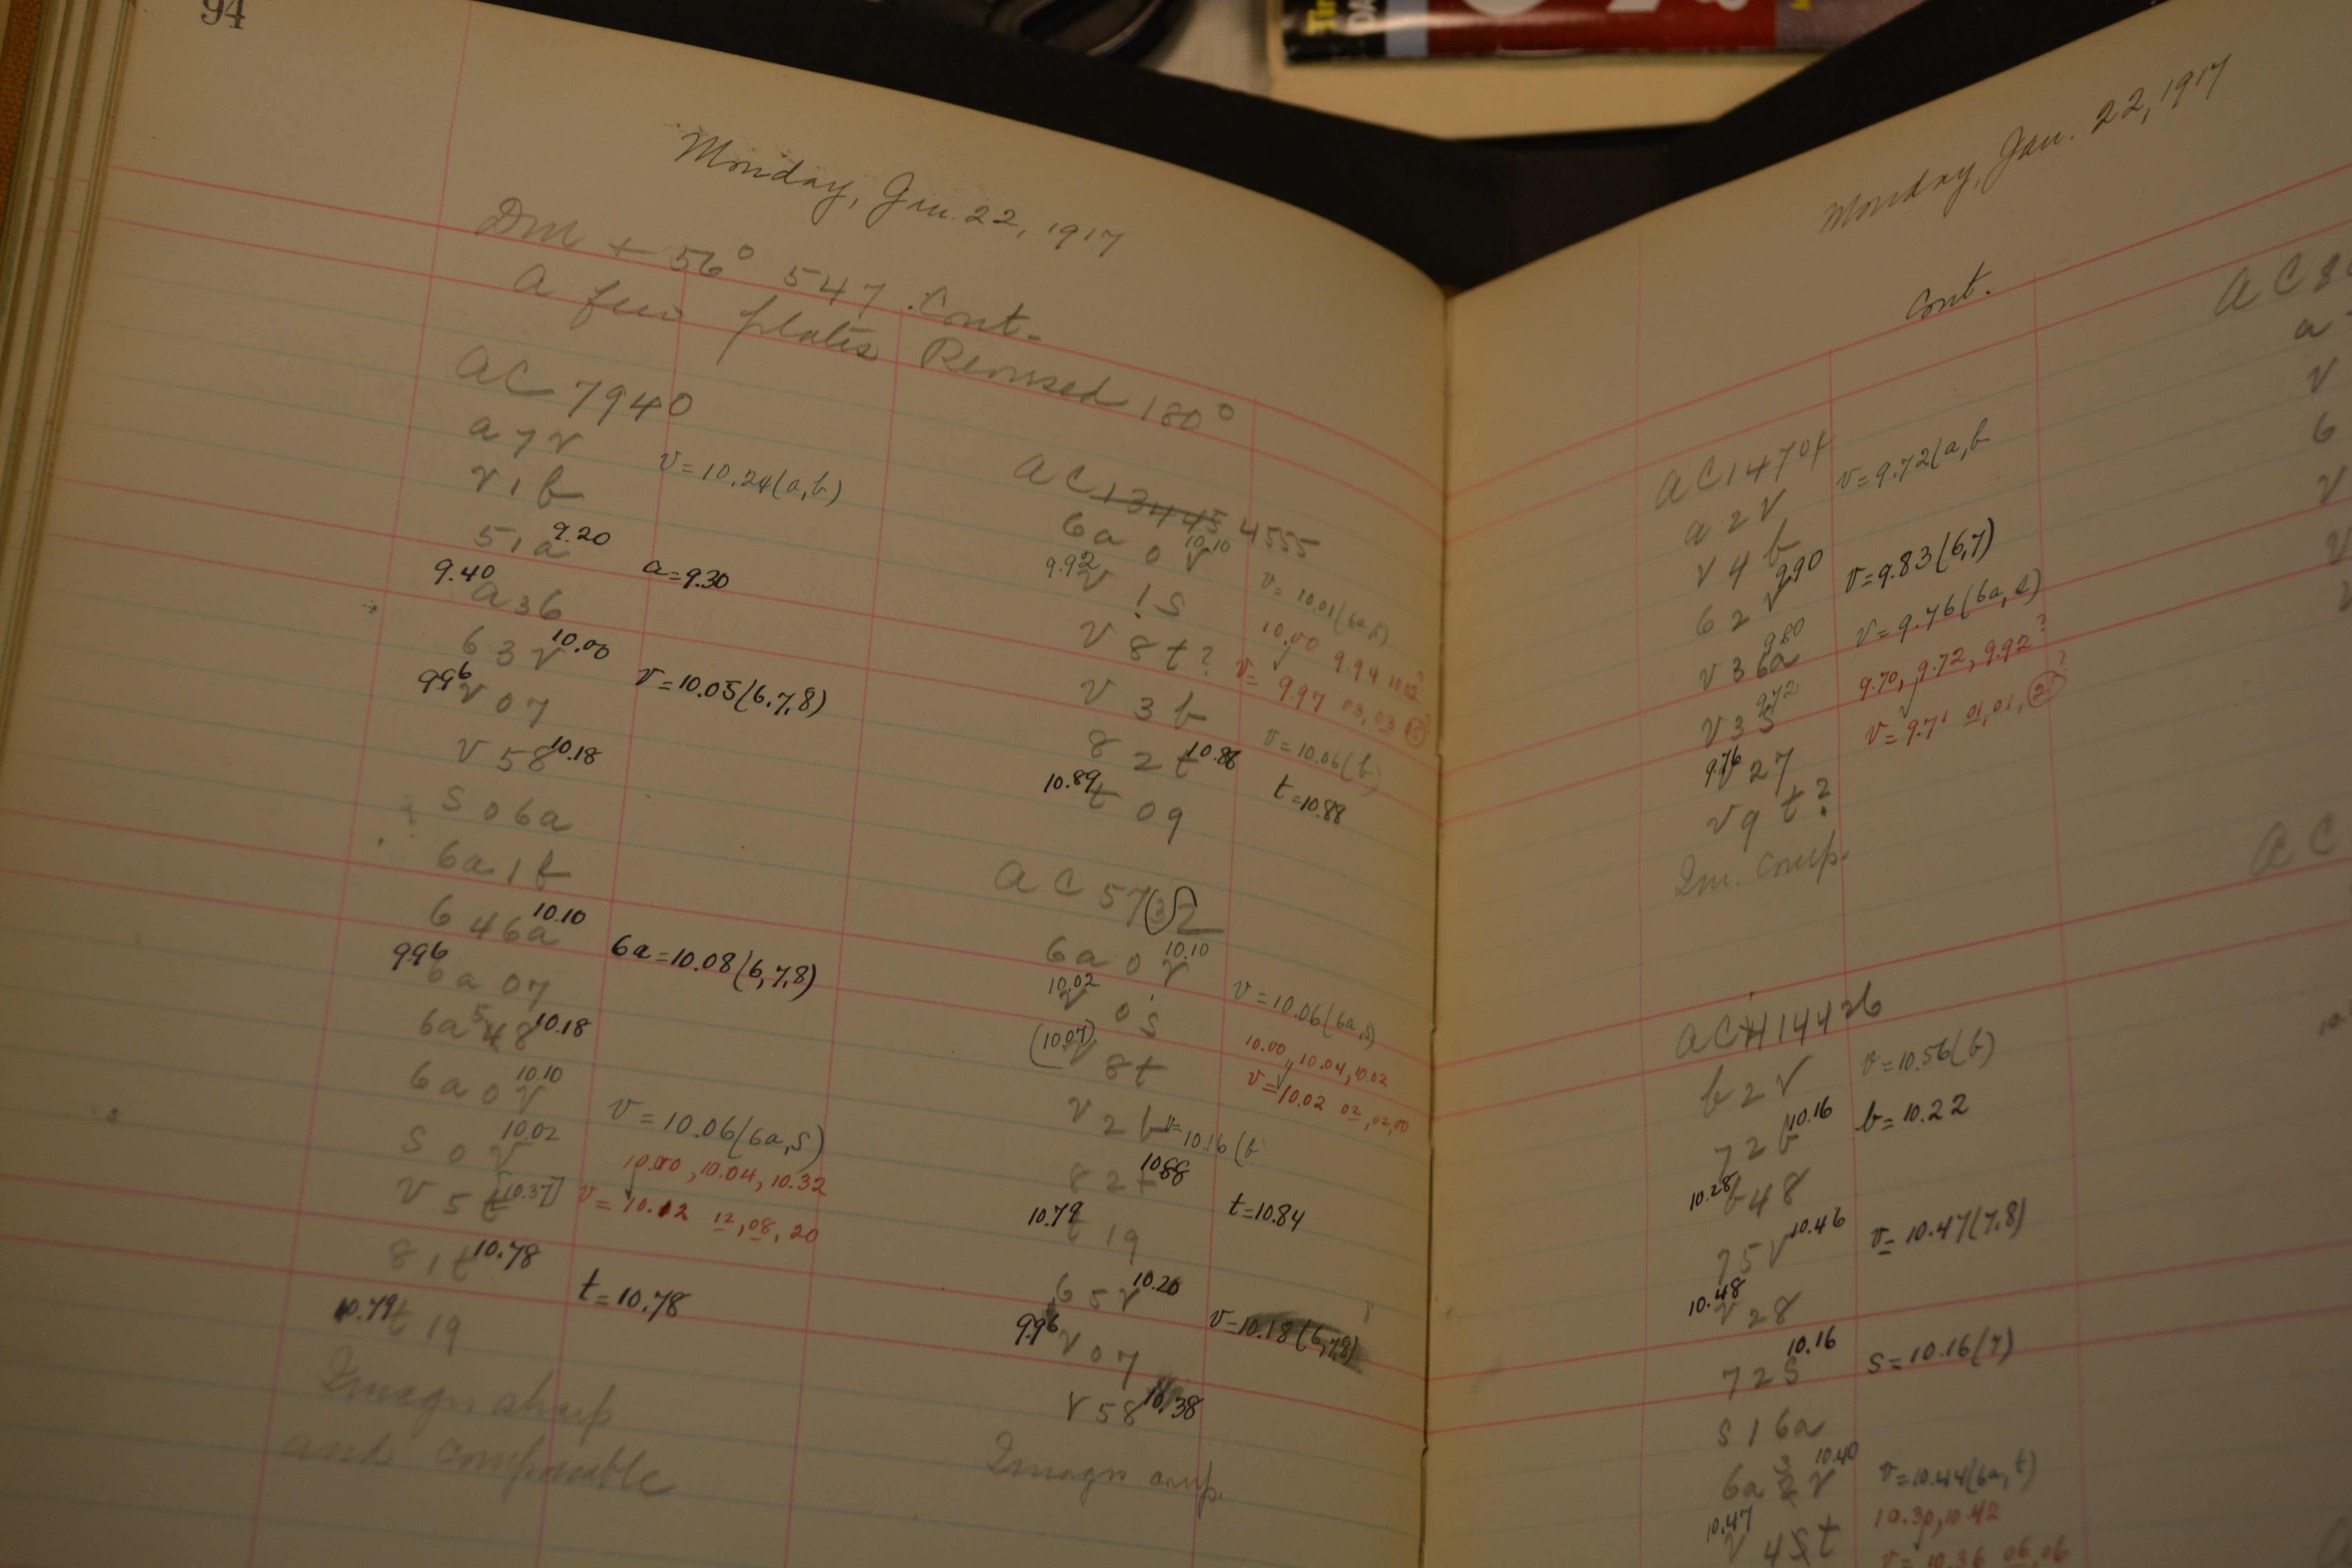 94
Monday, Jan. 22, 1917
DM + 56° 547. Cont.
A few plates Reversed 180°
AC 7940
a 7 v
v 1 b v = 10.24 (a, b)
5 1 a 9.20
9.40 a 3 6 a = 9.30
6 3 v 10.00
9.96 v 0 7 v = 10.05 (6,7,8)
v 5 8 10.18
s 0 6a
6a 1 b
6 4 6a 10.10
9.96 6a 0 7 6a = 10.08 (6,7,8)
6a 5 4 8 10.18
6a 0 v 10.10
s 0 v 10.02 v = 10.06 (6a, s)
v 5 t [10.37] 10.00, 10.04, 10.32
v = 10.12 12, 08, 20
8 1 t 10.78
10.79 t 1 9 t = 10.78
Images sharp
and comparable
AC 13445 4555
6a 0 v 10.10
9.92 v 1 s v = 10.01 (6a, s)
v 8 t? 10.00 9.94 10.02?
v = 9.97 03, 03
v 3 b v = 10.06 (b)
8 2 t 10.88
10.89 t 0 9 t = 10.88
AC 5732
6a 0 v 10.10
10.02 v 0 s v = 10.06 (6a, s)
(10.07) v 8 t 10.00, 10.04, 10.02
v = 10.02 02, 02, 00
v 2 b v = 10.16 (b
8 2 t 10.88
10.79 t 1 9 t = 10.84
6 5 v 10.20
9.96 v 0 7 v = 10.18 (6,7,8)
v 5 8 10.38
Images comp.
Monday, Jan. 22, 1917
Cont.
a 2 v v = 9.72 (a, b
v 4 b
6 2 v 9.90 v = 9.83 (6,7)
v 3 6a 9.80 v = 9.76 (6a, s)
v 3 s 9.72 9.70, 9.72, 9.92?
9.76 v 2 7 v = 9.71 01, 01, 2?
v 9 t?
Im. comp.
AC 14426
b 2 v v = 10.56 (b)
7 2 b 10.16 b = 10.22
10.28 b 4 8
7 5 v 10.46 v = 10.47 (7,8)
10.48 v 2 8
7 2 s 10.16 s = 10.16 (7)
s 1 6a
6a 3 2 v 10.40 v = 10.44 (6a, t)
10.47 v 4 5 t 10.30, 10.42
v = 10.36 06, 06
a
v
6
v
v
AC